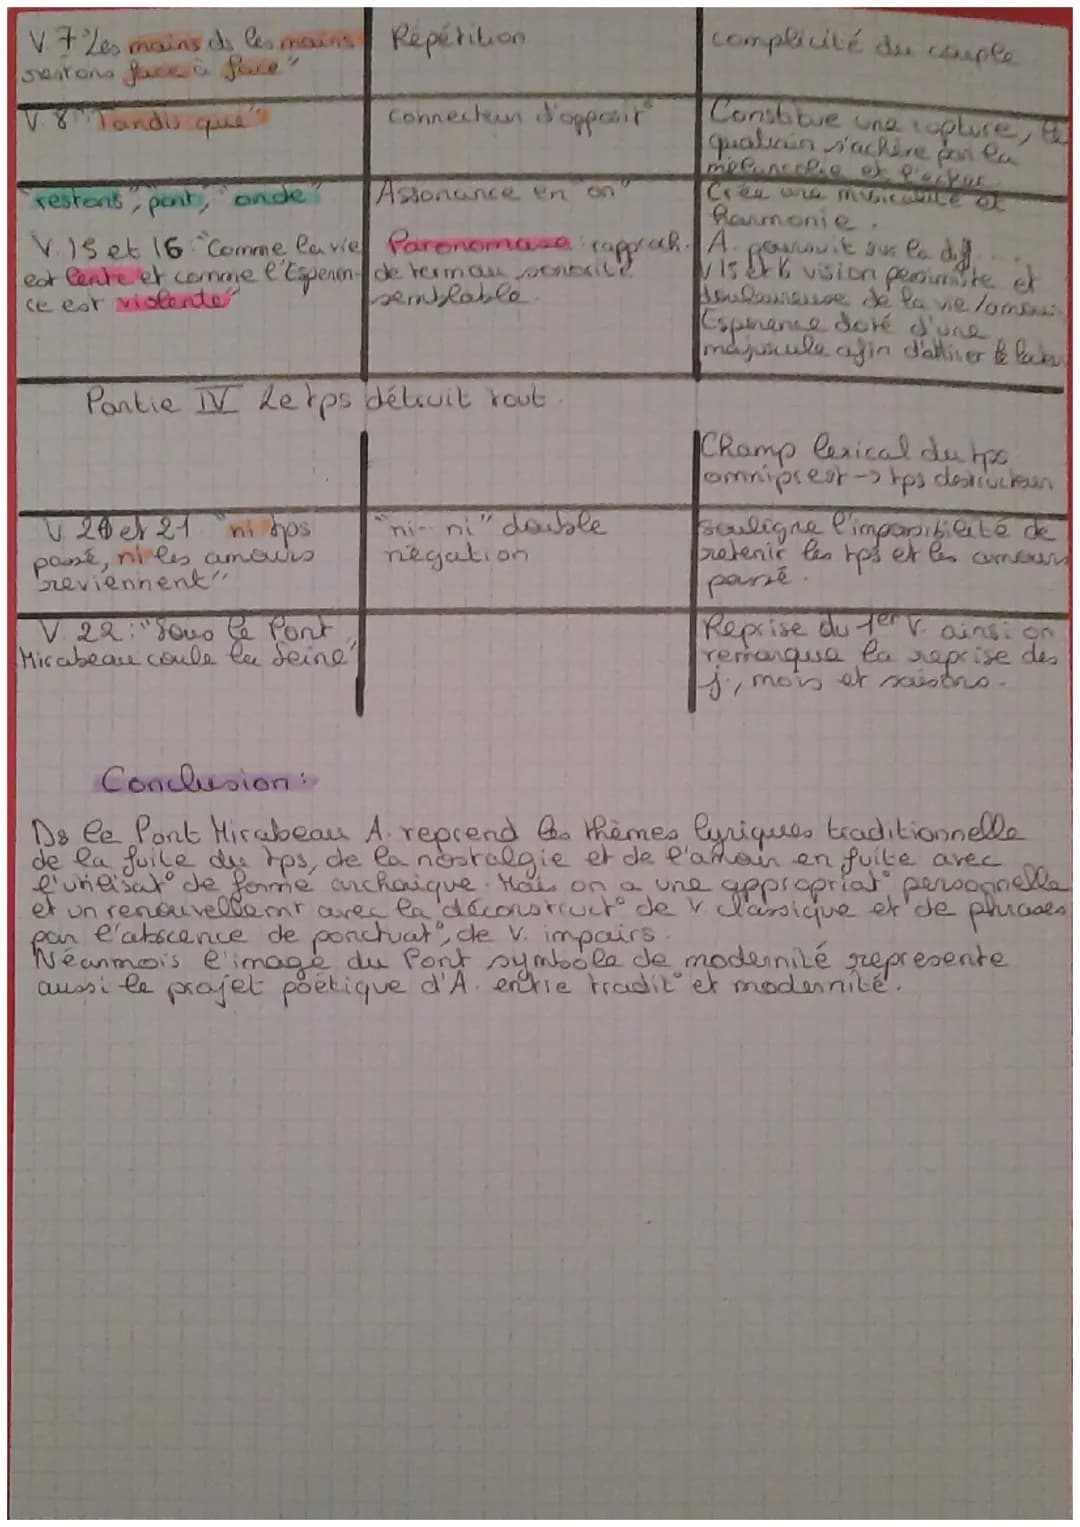 V. 7 "Les mains ds les mains
restons face à face"
Répétition
complicité du couple
V. 8 "Tandis que"
connecteur d'opposit°
Constitue une rupture, le
quatrain s'achève par la
mélancolie et
"restons", pont, "onde"
Assonance en "on"
Crée une musicalité et
harmonie.
V. 15 et 16 : "Comme la vie
est lente et comme l'Espéran-
ce est violente"
Paronomase : rapproch.
de termau sonorité
semblable.
A. poursuit sur la
V 15 et 16 vision pessimiste et
douloureuse de la vie/amour.
Espérance doté d'une
majuscule afin d'attiser le
Partie IV Le tps détruit tout.
Champ lexical du tps
omniprest -> tps destructeur
V. 20 et 21 "ni tps
passé, ni les amours
reviennent"
"ni-- ni" double
négation
souligne l'impossibilité de
retenir les tps et les amours
passé.
V. 22 : "Sous le Pont
Mirabeau coule la Seine"
Reprise du 1er V. ainsi on
remarque la reprise des
j., mois et saisons.
Conclusion :
Ds le Pont Mirabeau A. reprend les thèmes lyriques traditionnelle
de la fuite du tps, de la nostalgie et de l'amour en fuite avec
l'utilisat° de forme archaïque. Mais on a une appropriat° personnelle
et un renouvellemt avec la déconstruct° de V. classique et de phrases
par l'abscence de ponctuat°, de V. impairs.
Néanmois l'image du Pont symbole de modernité represente
aussi le projet poëtique d'A. entre tradit° et modernité.